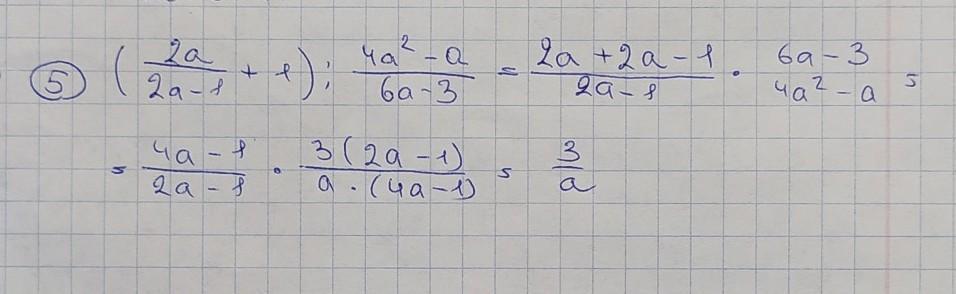 ⑤ (2a/(2a-1) + 1) : (4a² - a)/(6a-3) = (2a + 2a - 1)/(2a-1) · (6a-3)/(4a² - a) =
= (4a-1)/(2a-1) · 3(2a-1)/(a·(4a-1)) = 3/a